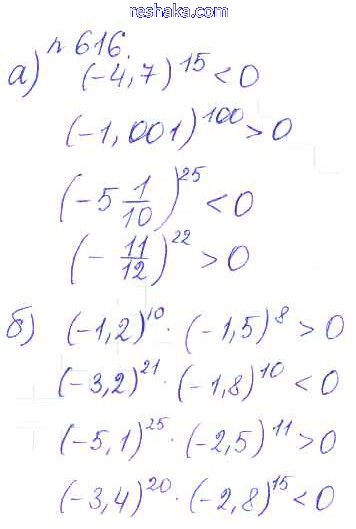 reshaka.com
№ 616.
а) (-4,7)^15 < 0
(-1,001)^100 > 0
(-5 1/10)^25 < 0
(- 11/12)^22 > 0
б) (-1,2)^10 · (-1,5)^8 > 0
(-3,2)^21 · (-1,8)^10 < 0
(-5,1)^25 · (-2,5)^11 > 0
(-3,4)^20 · (-2,8)^15 < 0